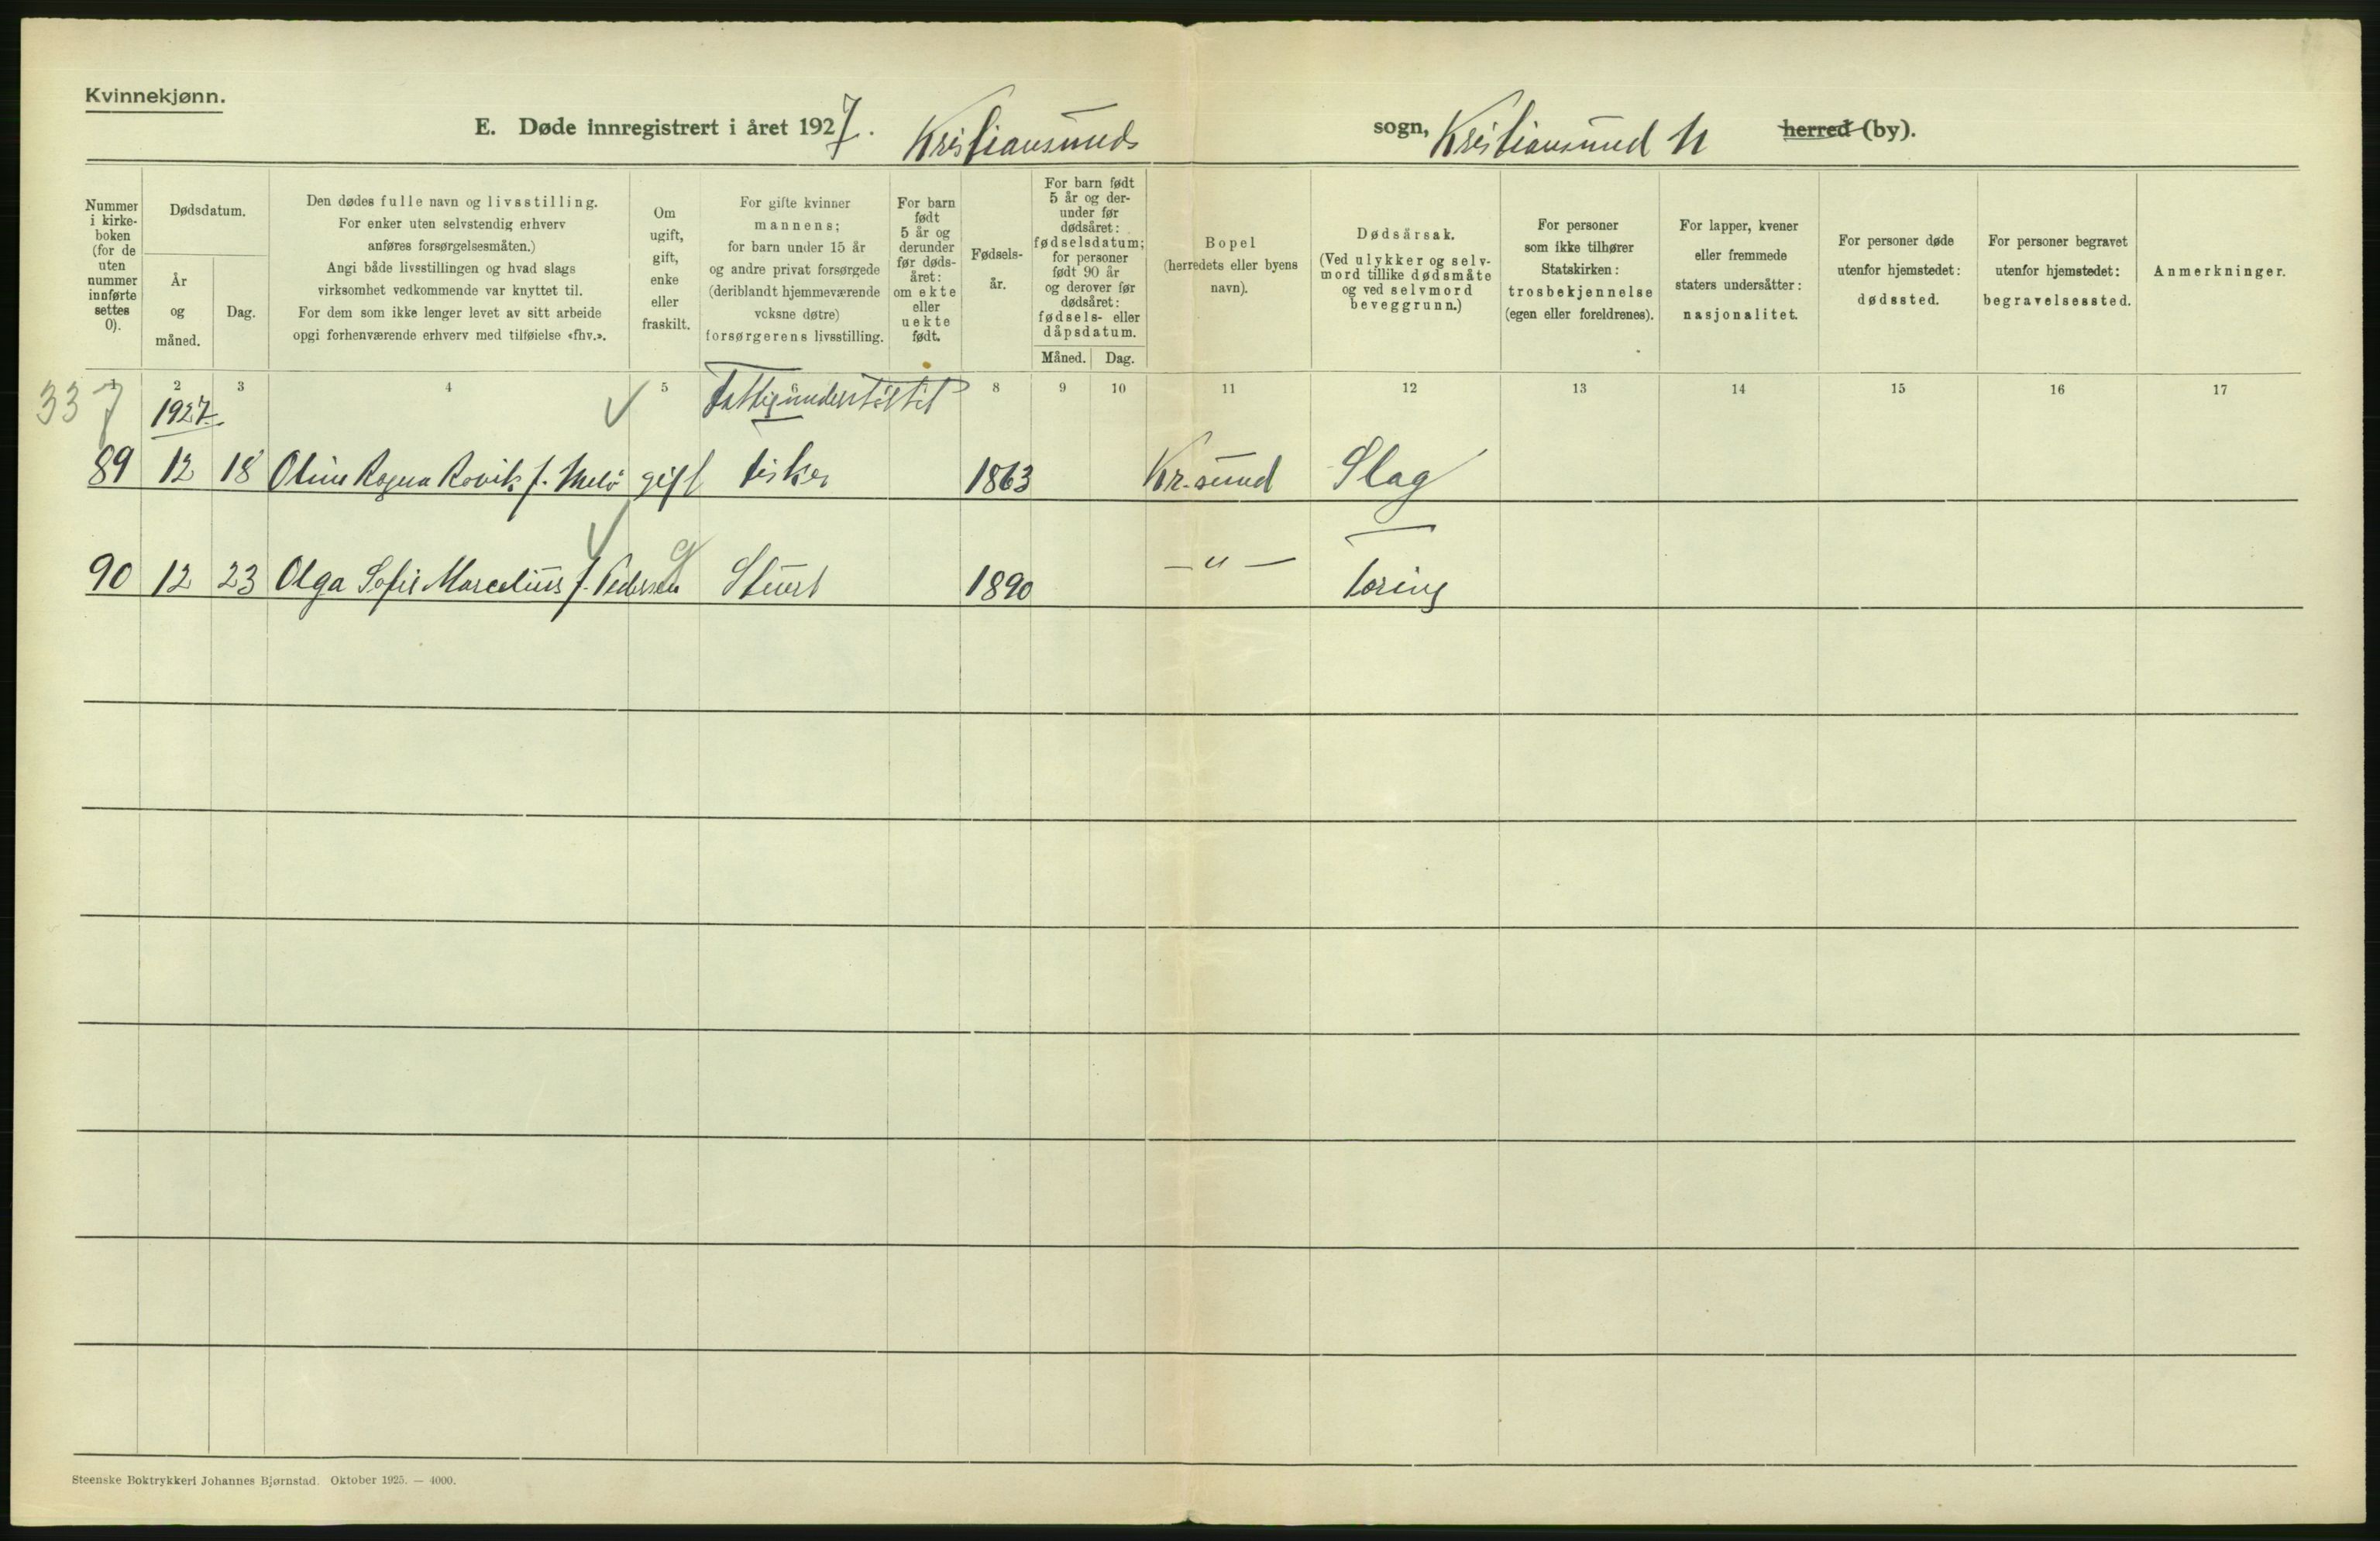 Kvinnekjønn.
E. Døde innregistrert i året 1927. Kristiansunds sogn, Kristiansund N herred (by).
Nummer i kirke- boken (for de uten nummer innførte settes 0).
Dødsdatum.
År og måned.
Dag.
Den dødes fulle navn og livsstilling.
For enker uten selvstendig erhverv
anføres forsørgelsesmåten.)
Angi både livsstillingen og hvad slags
virksomhet vedkommende var knyttet til.
For dem som ikke lenger levet av sitt arbeide
opgi forhenværende erhverv med tilføielse «fhv.».
Om ugift, gift, enke eller fraskilt.
For gifte kvinner
mannens;
for barn under 15 år
og andre privat forsørgede
(deriblandt hjemmeværende
voksne døtre)
forsørgerens livsstilling.
For barn født 5 år og derunder før døds- året: om ekte eller uekte født.
Fødsels- år.
For barn født
5 år og der-
under før
dødsåret:
fødselsdatum;
for personer
født 90 år
og derover før
dødsåret:
fødsels- eller
dåpsdatum.
Måned. Dag.
Bopel
(herredets eller byens
navn).
Dødsårsak.
(Ved ulykker og selv-
mord tillike dødsmåte
og ved selvmord
beveggrunn.)
For personer
som ikke tilhører
Statskirken:
trosbekjennelse
(egen eller foreldrenes).
For lapper, kvener
eller fremmede
staters undersåtter:
nasjonalitet.
For personer døde
utenfor hjemstedet:
dødssted.
For personer begravet
utenfor hjemstedet:
begravelsessted.
Anmerkninger.
1 2 3 4 5 6 8 9 10 11 12 13 14 15 16 17
337
1927. Fattigunderstøttet
89 12 18 Oline Ragna Rovik f. Melø gift fisker 1863 Kr.sund Slag
90 12 23 Olga Sofie Marcelius f. Pedersen g Stuert 1890 — " — Tæring
Steenske Boktrykkeri Johannes Bjørnstad. Oktober 1925. — 4000.